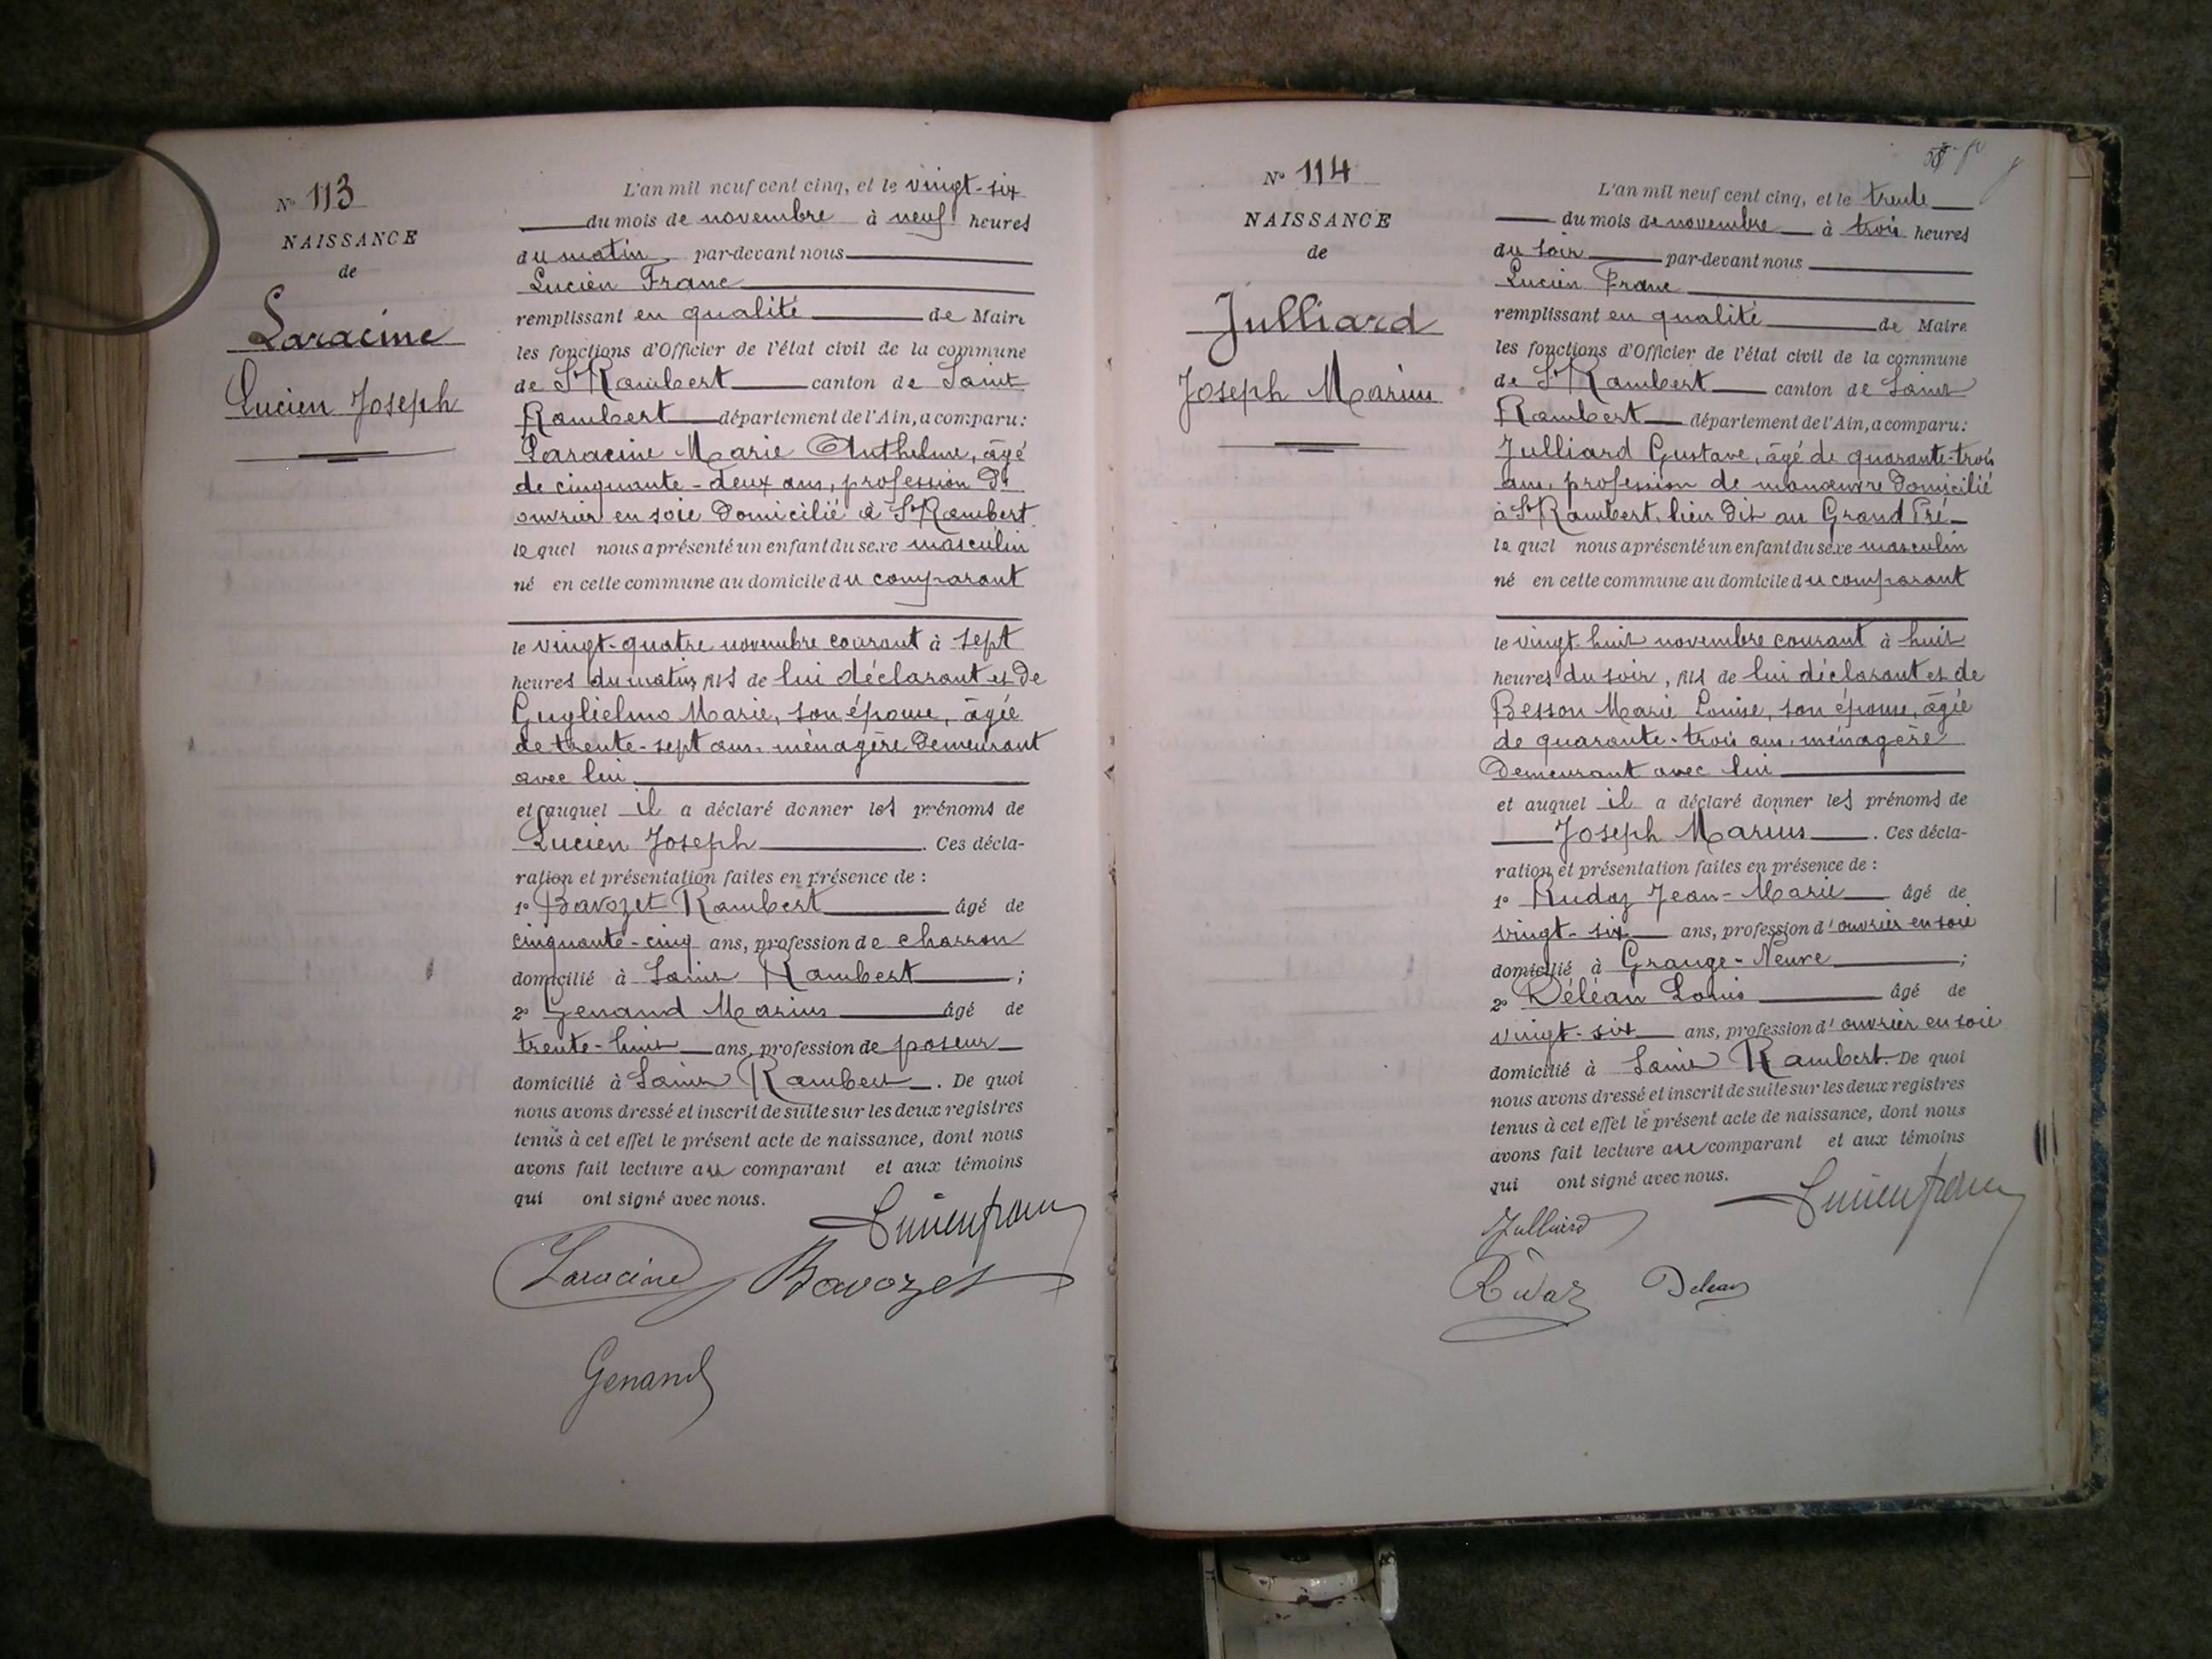 N° 113
NAISSANCE
de
Laracine
Lucien Joseph
L'an mil neuf cent cinq, et le vingt-six
du mois de novembre à neuf heures
du matin, par-devant nous
Lucien Franc
remplissant en qualité de Maire
les fonctions d'Officier de l'état civil de la commune
de St Rambert canton de Saint
Rambert département de l'Ain, a comparu:
Laracine Marie Anthelme, âgé
de cinquante-deux ans, profession d'
ouvrier en soie domicilié à St Rambert
lequel nous a présenté un enfant du sexe masculin
né en cette commune au domicile du comparant
le vingt-quatre novembre courant à sept
heures du matin, fils de lui déclarant et de
Guglielmo Marie, son épouse, âgée
de trente-sept ans, ménagère demeurant
avec lui
et auquel il a déclaré donner les prénoms de
Lucien Joseph. Ces décla-
ration et présentation faites en présence de :
1° Bavozet Rambert âgé de
cinquante-cinq ans, profession de charron
domicilié à Saint Rambert ;
2° Genand Marius âgé de
trente-huit ans, profession de poseur
domicilié à Saint Rambert. De quoi
nous avons dressé et inscrit de suite sur les deux registres
tenus à cet effet le présent acte de naissance, dont nous
avons fait lecture au comparant et aux témoins
qui ont signé avec nous.
Lucien franc
Laracine Bavozet
Genand
N° 114
NAISSANCE
de
Julliard
Joseph Marius
L'an mil neuf cent cinq, et le trente
du mois de novembre à trois heures
du soir par-devant nous
Lucien Franc
remplissant en qualité de Maire
les fonctions d'Officier de l'état civil de la commune
de St Rambert canton de Saint
Rambert département de l'Ain, a comparu:
Julliard Gustave, âgé de quarante-trois
ans, profession de manœuvre domicilié
à St Rambert, lieu dit au Grand Pré
lequel nous a présenté un enfant du sexe masculin
né en cette commune au domicile du comparant
le vingt-huit novembre courant à huit
heures du soir, fils de lui déclarant et de
Besson Marie Louise, son épouse, âgée
de quarante-trois ans, ménagère
demeurant avec lui
et auquel il a déclaré donner les prénoms de
Joseph Marius. Ces décla-
ration et présentation faites en présence de :
1° Rudaz Jean-Marie âgé de
vingt-six ans, profession d'ouvrier en soie
domicilié à Grange-Neuve ;
2° Déléan Louis âgé de
vingt-six ans, profession d'ouvrier en soie
domicilié à Saint Rambert. De quoi
nous avons dressé et inscrit de suite sur les deux registres
tenus à cet effet le présent acte de naissance, dont nous
avons fait lecture au comparant et aux témoins
qui ont signé avec nous.
Lucien franc
Julliard
Rudaz Delean